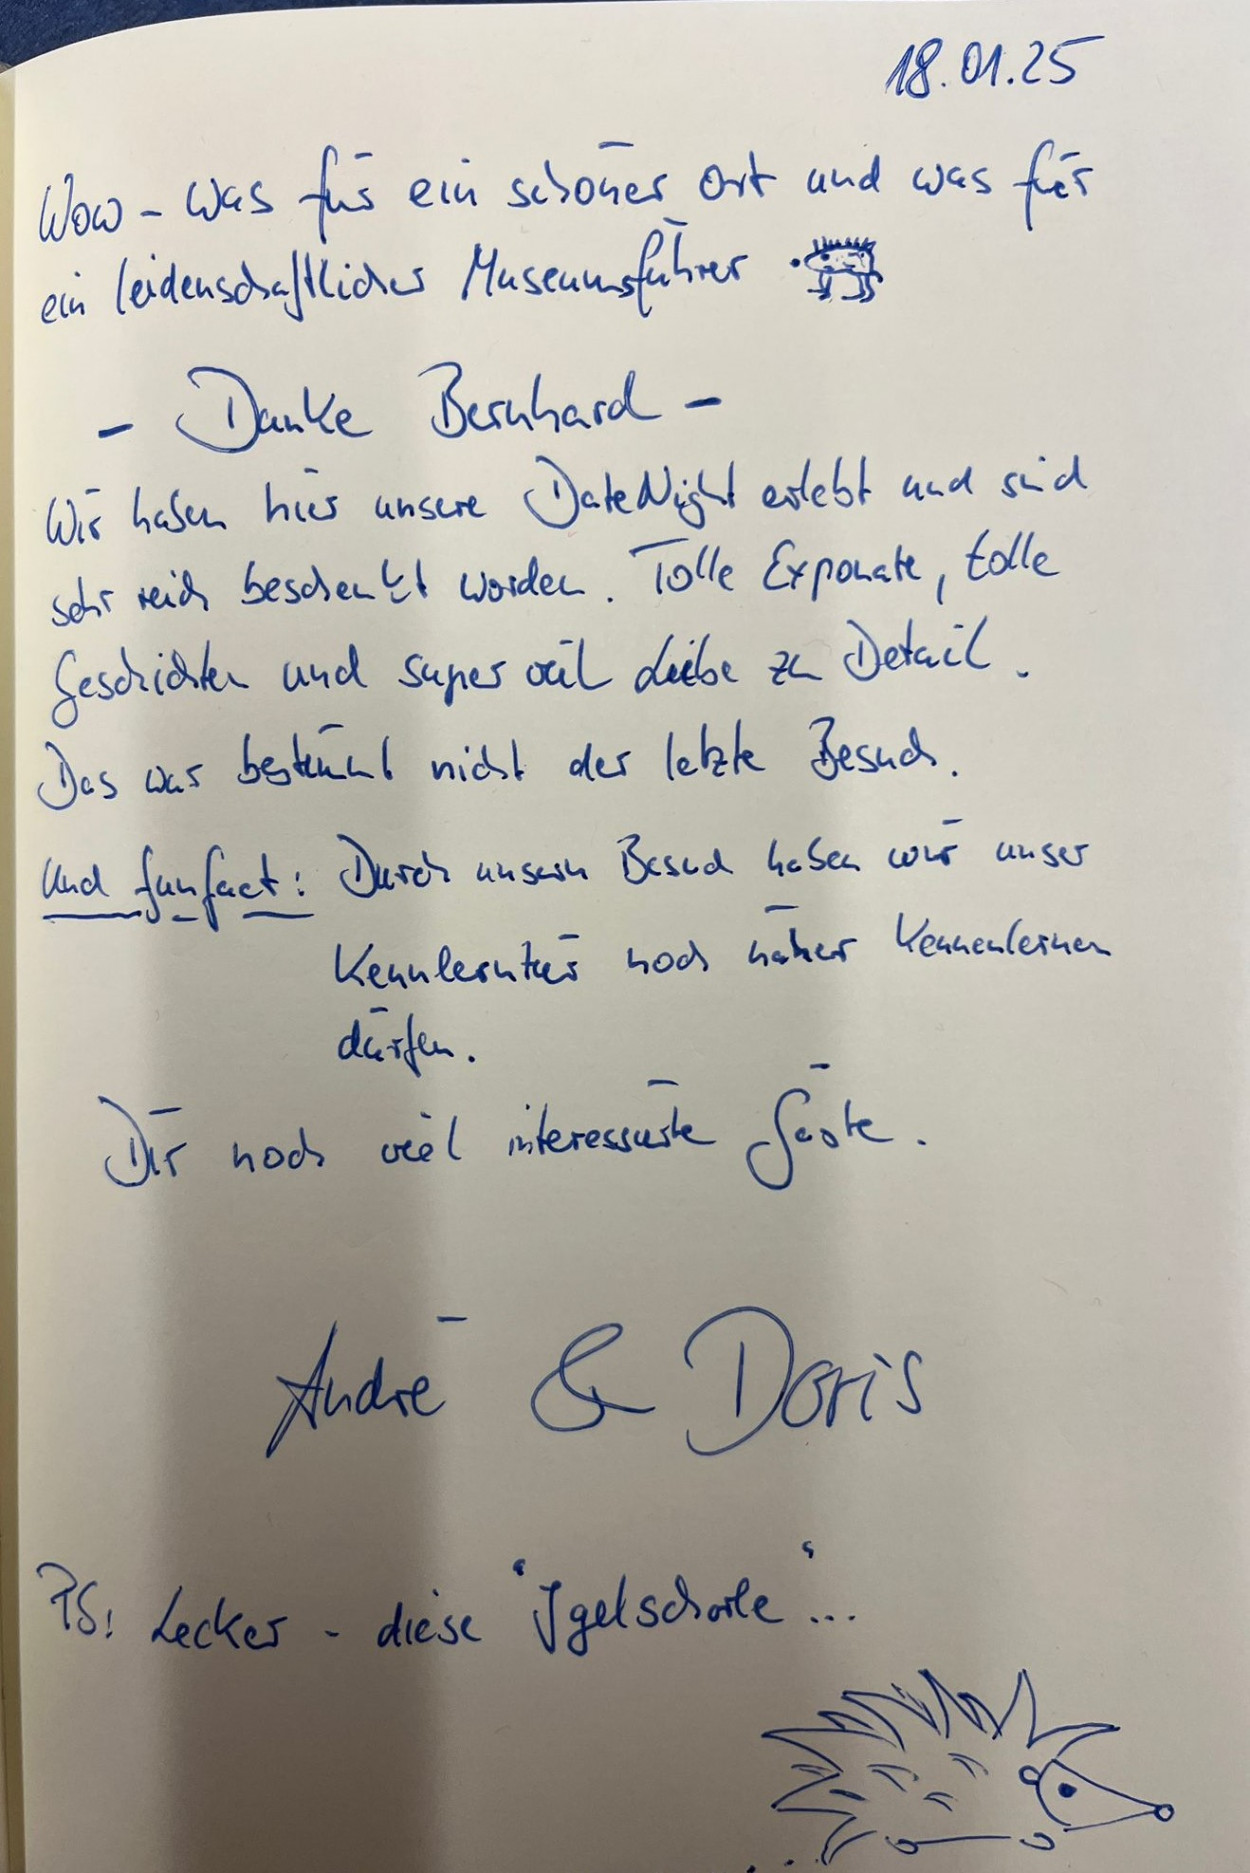 18.01.25
Wow – was für ein schöner Ort und was für
ein leidenschaftlicher Museumsführer
– Danke Bernhard –
Wir haben hier unsere DateNight erlebt und sind
sehr reich beschenkt worden. Tolle Exponate, tolle
Geschichten und super viel Liebe zu Detail.
Das war bestimmt nicht der letzte Besuch.
Und funfact: Durch unsern Besuch haben wir unser
Kennlerntier noch näher kennenlernen
dürfen.
Dir noch viel interessierte Gäste.
André & Doris
PS: Lecker - diese "Igelschorle"...